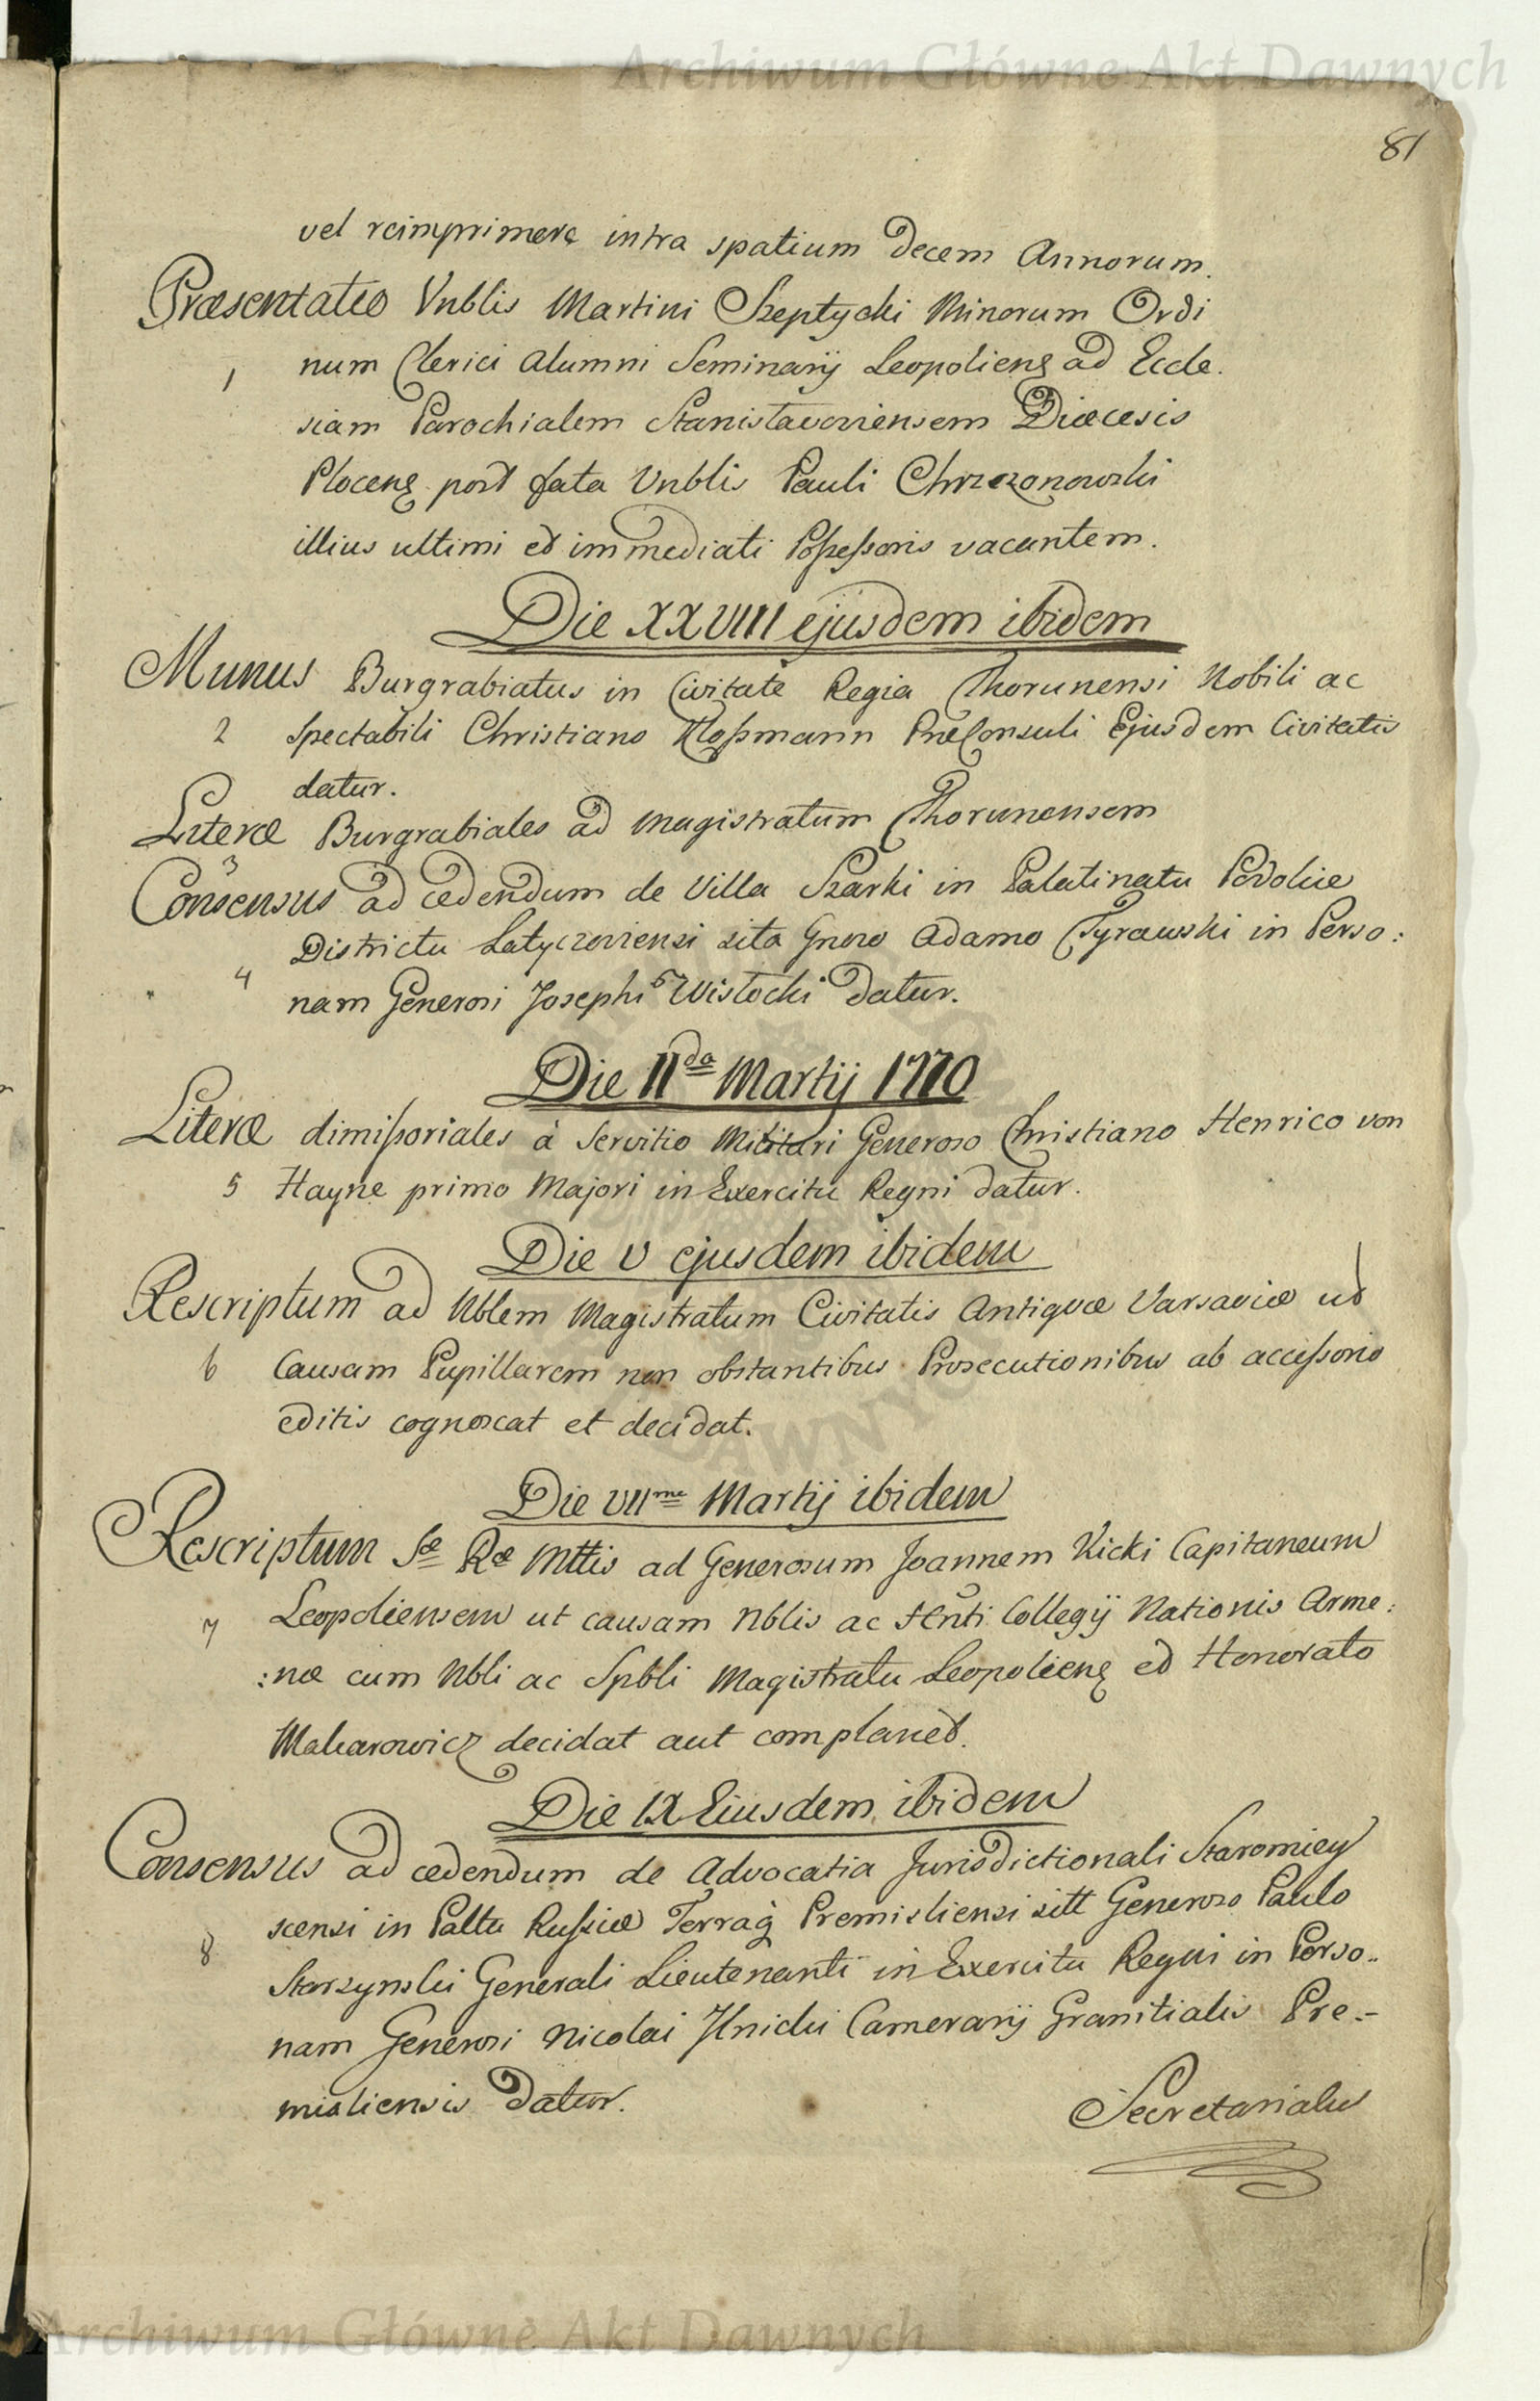 Archiwum Główne Akt Dawnych
81
vel reimprimere intra spatium Decem Annorum.
Præsentatio Vnblis Martini Szeptycki Minorum Ordi
1 num Clerici Alumni Seminarij Leopolienę ad Eccle.
siam Parochialem Stanisławoviensem Diæcesis
Plocenę post fata Vnblis Pauli Chrzczonowski
illius ultimi et immediati Poſseſsoris vacantem.
Die XXVIIII ejusdem ibidem
Munus Burgrabiatus in Civitate Regia Thorunensi Nobili ac
2 Spectabili Christiano Kloſsmann PræConsuli Ejusdem Civitatis
datur.
Literæ Burgrabiales ad Magistratum Thorunensem
3
Consensus ad cedendum de Villa Szarki in Palatinatu Podoliæ
Districtu Latyczoviensi sita Gnoso Adamo Tyrawski in Perso:
4 nam Generosi Josephi Wisłocki datur.
Die II da Martij 1770
Literæ dimiſsoriales à Servitio Militari Generoso Christiano Henrico von
5 Hayne primo Majori in Exercitu Regni datur.
Die V ejusdem ibidem
Rescriptum ad Nblem Magistratum Civitatis Antiquæ Varsaviæ ut
6 Causam Pupillarem non obstantibus Prosecutionibus ab acceſsorio
editis cognoscat et decidat.
Die VII me Martij ibidem
Rescriptum Sæ Ræ Mttis ad Generosum Joannem Kicki Capitaneum
7 Leopoliensem ut causam Nblis ac Hnti Collegij Nationis Arme:
:næ cum Nbli ac Spbli Magistratu Leopolienę et Honorato
Makarowicz decidat aut complanet.
Die IX Eiusdem ibidem
Consensus ad cedendum de Advocatia Jurisdictionali Staromiey
scensi in Palttu Ruſsiæ Terraq̀ Premisliensi sitt Generoso Paulo
8 Starzynski Generali Lieutenanti in Exercitu Regni in Perso..
nam Generosi Nicolai Ilnicki Camerarij Granitialis Pre.-
misliensis datur.
Secretariatus
Archiwum Główne Akt Dawnych